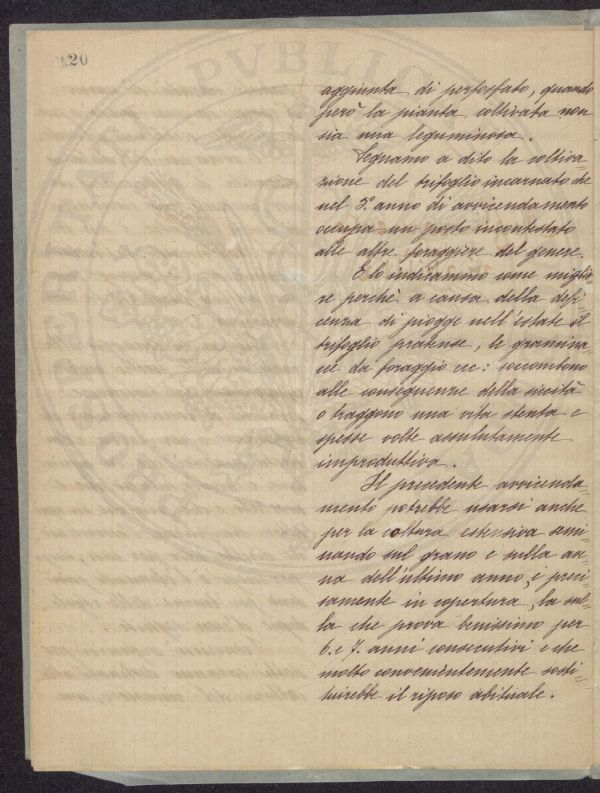 120
aggiunta di perfosfato, quando
però la pianta coltivata non
sia una leguminosa.
Segnamo a dito la coltiva=
zione del trifoglio incarnato che
nel 5º. anno di avvicendamento
occupa un posto incontestato
alle altre foraggiere del genere.
E lo indicammo come miglio=
re perchè a causa della defi=
cenza di piogge nell'estate il
trifoglio pratense, le gramina=
cee da foraggio ecc: soccombono
alle conseguenze della siccità
o traggono una vita stenta e
spesse volte assulutamente
improduttiva.
Il precedente avvicenda=
mento potrebbe usarsi anche
per la coltura estensiva semi=
nando sul grano e sulla ave=
na dell'ultimo anno, e preci=
samente in copertura, la sul=
la che prova benissimo per
6. e 7. anni consecutivi e che
molto convenientemente sosti=
tuirebbe il riposo abituale.